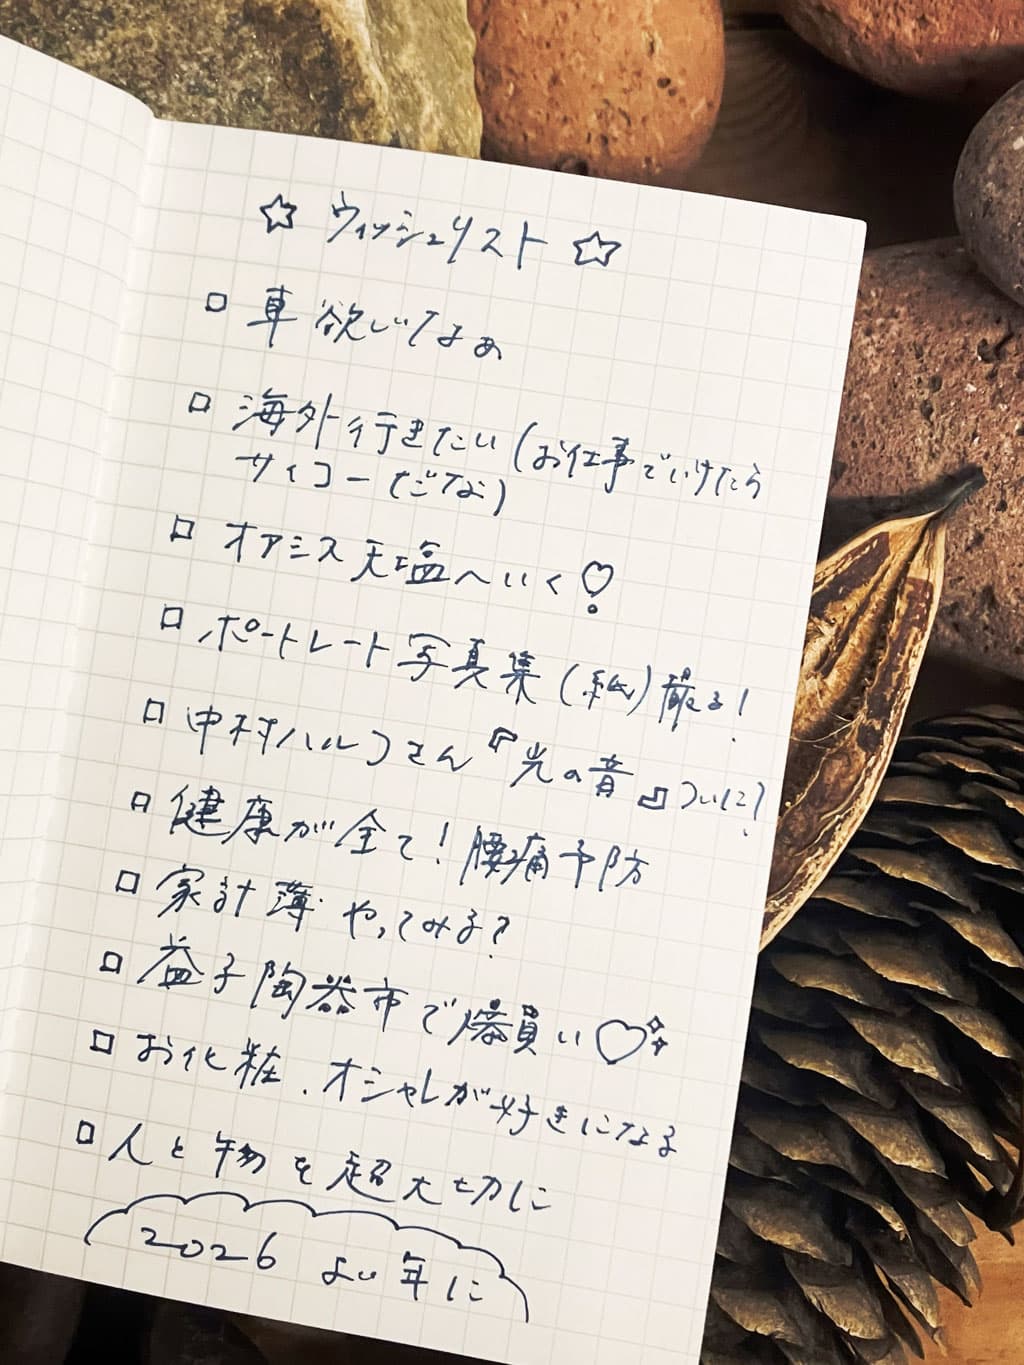 ☆ ウィッシュリスト ☆
□ 車欲しいてなぁ
□ 海外行きたい(お仕事でいけたら
サイコーだな)
□ オアシス天塩へいく♡
□ ポートレート写真集(紙)撮る!
□ 中村ハルコさん『光の音』ついに?
□ 健康が全て!腰痛予防
□ 家計簿やってみる?
□ 益子陶器市で爆買い♡
□ お化粧、オシャレが好きになる
□ 人と物を超大切に
2026 よい年に